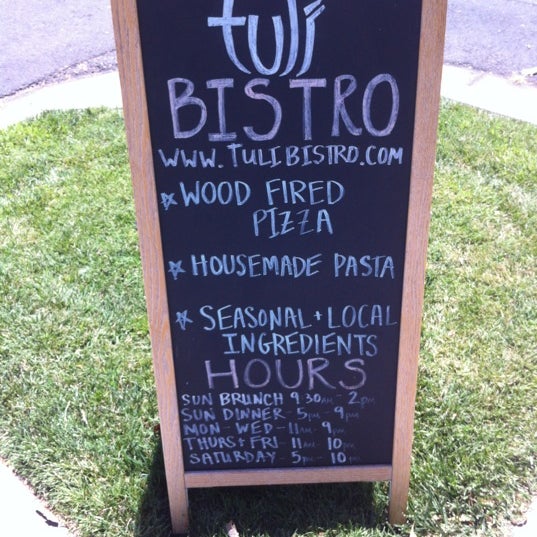 tuli
BISTRO
WWW.TULIBISTRO.COM
WOOD FIRED
PIZZA
HOUSEMADE PASTA
SEASONAL + LOCAL
INGREDIENTS
HOURS
SUN BRUNCH 9:30AM - 2PM
SUN DINNER - 5PM - 9PM
MON - WED - 11AM - 9PM
THURS + FRI - 11AM - 10PM
SATURDAY - 5PM - 10PM